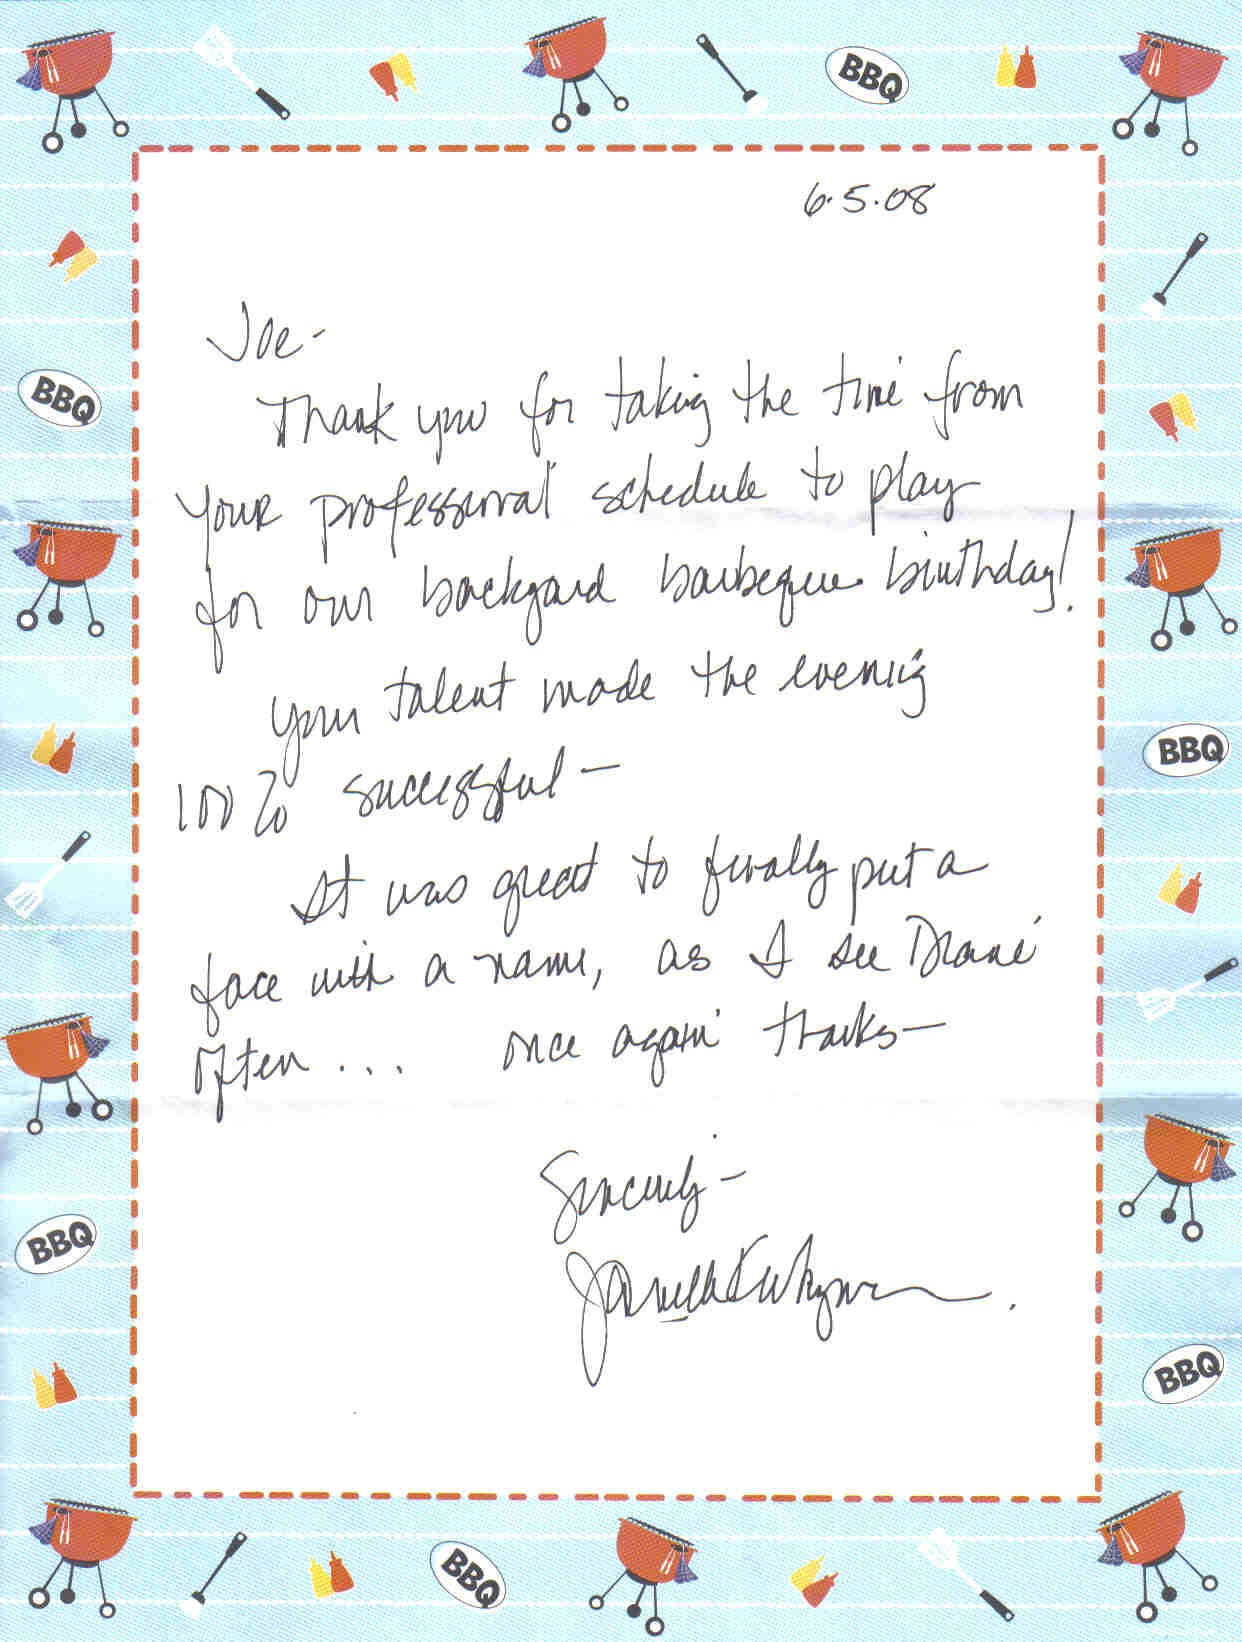 BBQ
6.5.08
Joe-
Thank you for taking the time from
your professional schedule to play
for our backyard barbeque birthday!
Your talent made the evening
100% successful -
It was great to finally put a
face with a name, as I see Diane
often ... once again thanks -
Sincerely -
BBQ
BBQ
BBQ
BBQ
BBQ